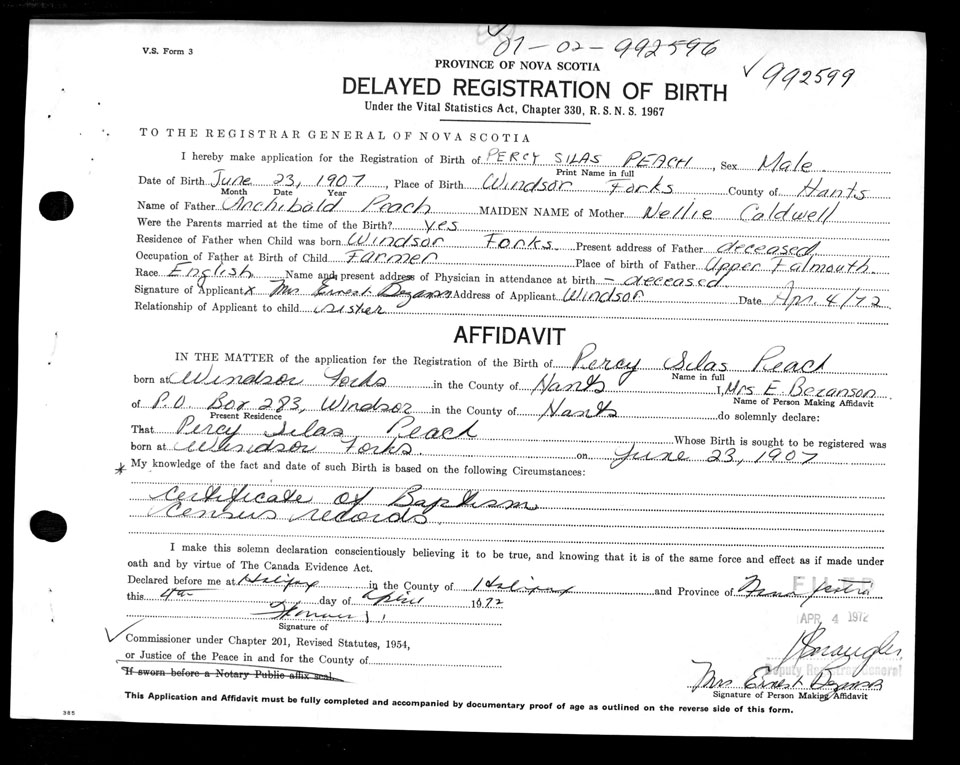 V.S. Form 3
01-02-992596
992599
PROVINCE OF NOVA SCOTIA
DELAYED REGISTRATION OF BIRTH
Under the Vital Statistics Act, Chapter 330, R.S.N.S. 1967
TO THE REGISTRAR GENERAL OF NOVA SCOTIA
I hereby make application for the Registration of Birth of PERCY SILAS PEACH, Sex Male.
Print Name in full
Date of Birth June 23, 1907, Place of Birth Windsor Forks County of Hants
Month Date Year
Name of Father Archibald Peach MAIDEN NAME of Mother Nellie Caldwell
Were the Parents married at the time of the Birth? yes
Residence of Father when Child was born Windsor Forks. Present address of Father deceased
Occupation of Father at Birth of Child Farmer Place of birth of Father Upper Falmouth.
Race English Name and present address of Physician in attendance at birth - deceased
Signature of Applicant x Mrs Ernest Bezanson Address of Applicant Windsor Date Apr. 4/72
Relationship of Applicant to child sister
AFFIDAVIT
IN THE MATTER of the application for the Registration of the Birth of Percy Silas Peach
Name in full
born at Windsor Forks in the County of Hants I, Mrs E. Bezanson
Name of Person Making Affidavit
of P.O. Box 283, Windsor in the County of Hants do solemnly declare:
Present Residence
That Percy Silas Peach Whose Birth is sought to be registered was
born at Windsor Forks on June 23, 1907
* My knowledge of the fact and date of such Birth is based on the following Circumstances:
Certificate of Baptism
Census records.
I make this solemn declaration conscientiously believing it to be true, and knowing that it is of the same force and effect as if made under
oath and by virtue of The Canada Evidence Act.
Declared before me at Halifax in the County of Halifax and Province of Nova Scotia
this 4th day of April 1972
FILED
APR 4 1972
Signature of
Commissioner under Chapter 201, Revised Statutes, 1954,
or Justice of the Peace in and for the County of
If sworn before a Notary Public affix seal.
Deputy Registrar General
Mrs Ernest Bezanson
Signature of Person Making Affidavit
This Application and Affidavit must be fully completed and accompanied by documentary proof of age as outlined on the reverse side of this form.
385